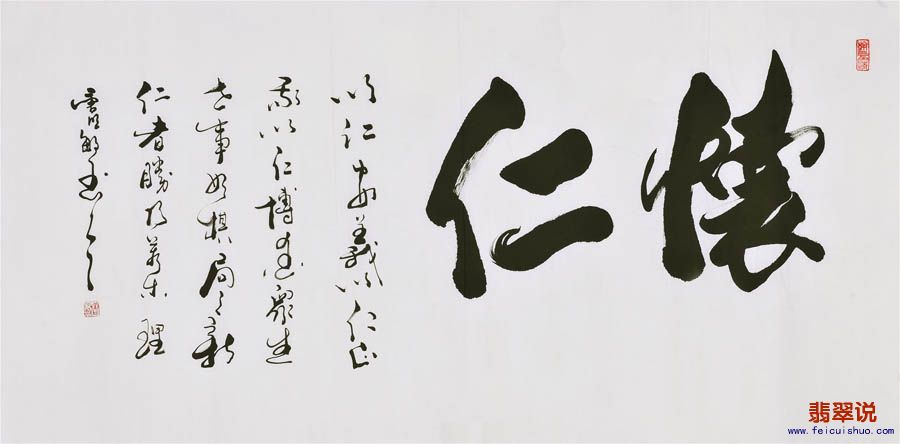 懷仁
以仁安義以仁正
我以仁博愛眾生
世事如棋局局新
仁者勝乃萬理
書
翡翠说
www.feicuishuo.com